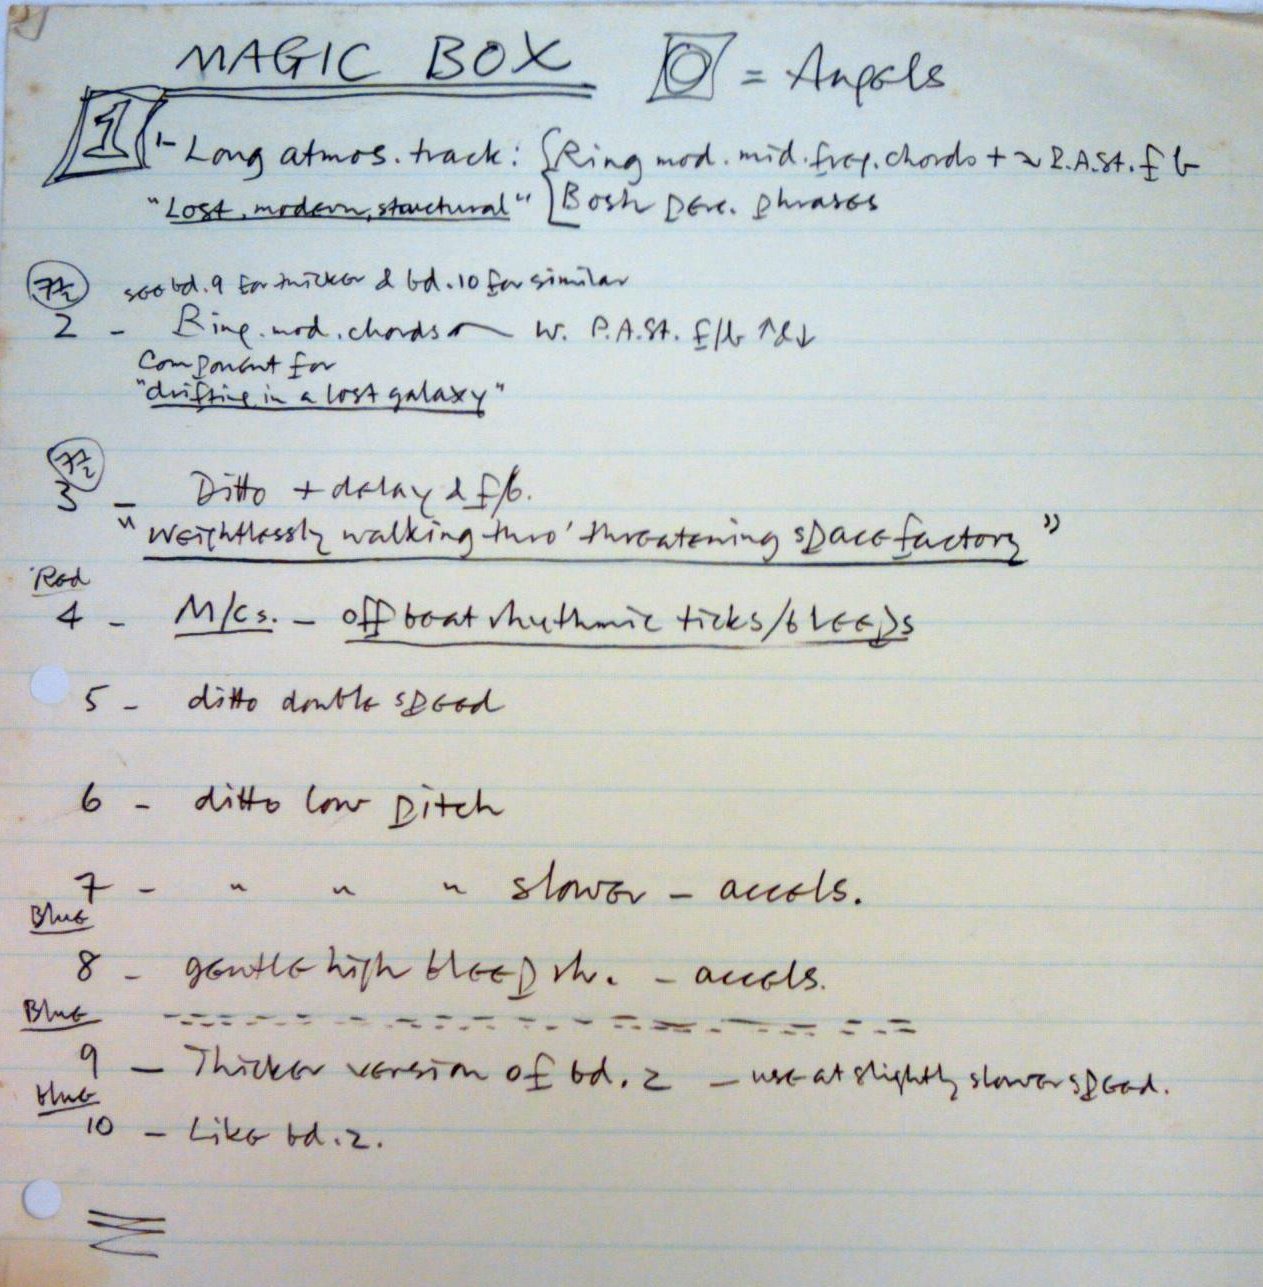 MAGIC BOX = Angels
1 1- Long atmos. track: Ring mod. mid. freq. chords + P.A.St. f b
"Lost, modern, structural" Bosh Perc. Phrases
7½ see bd. 9 for thicker & bd. 10 for similar
2 - Ring. mod. chords w. P.A.St. f/b ↑&↓
Component for
"drifting in a lost galaxy"
7½
3 - Ditto + delay & f/b.
"weightlessly walking thro' threatening space factory"
Red
4 - M/cs. - off beat rhythmic ticks/bleeps
5 - ditto double speed
6 - ditto low pitch
7 - " " " slower - accels.
Blue
8 - gentle high bleep rh. - accels.
Blue
9 - Thicker version of bd. 2 - use at slightly slower speed.
blue
10 - Like bd. 2.